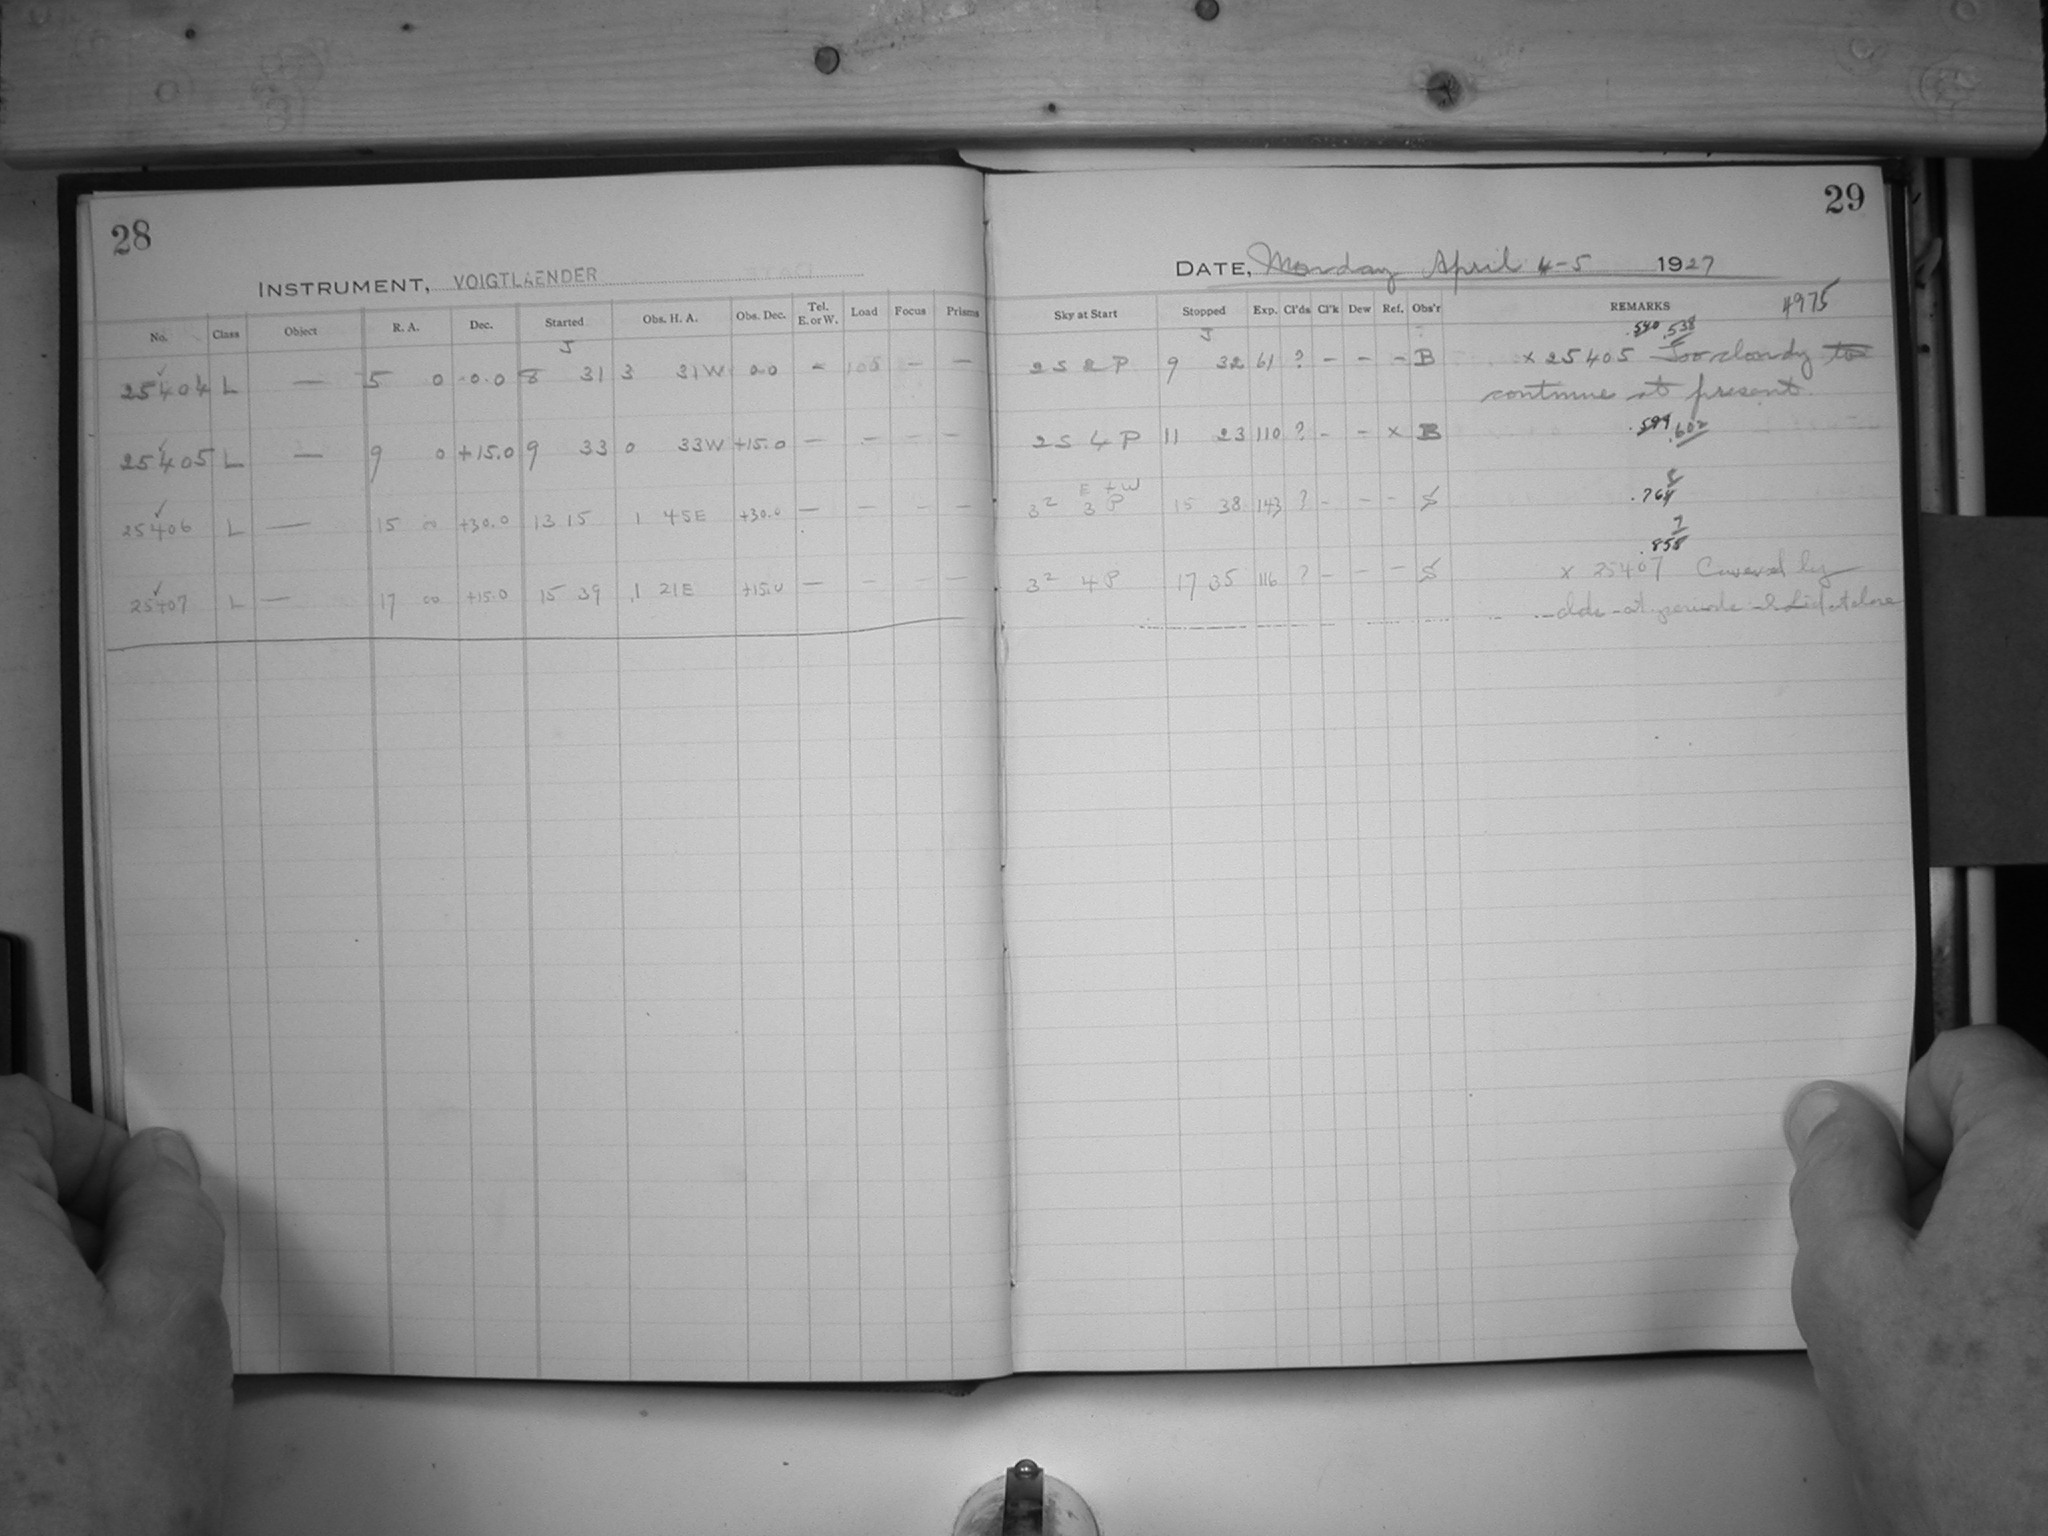 28
INSTRUMENT, VOIGTLAENDER
No. Class Object R. A. Dec. Started Obs. H. A. Obs. Dec. Tel. E. or W. Load Focus Prisms
J
25404 L — 5 0 0.0 8 31 3 31W 0.0 - 105 — —
25405 L — 9 0 +15.0 9 33 0 33W +15.0 — - - —
25406 L — 15 00 +30.0 13 15 1 45E +30.0 — - - —
25407 L — 17 00 +15.0 15 39 1 21E +15.0 — - - —
29
DATE, Monday April 4-5 1927
Sky at Start Stopped Exp. Cl'ds Cl'k Dew Ref. Obs'r REMARKS 4975
J .540 .538
2S 2 P 9 32 61 ? - - - B × 25405 Too cloudy to
continue at present
2S 4 P 11 23 110 ? - - × B .599 .602
E + W
3² 3 P 15 38 143 ? - - - S .764 8
.858 7
3² 4 P 17 35 116 ? - - - S × 25407 Covered by
clds at periods